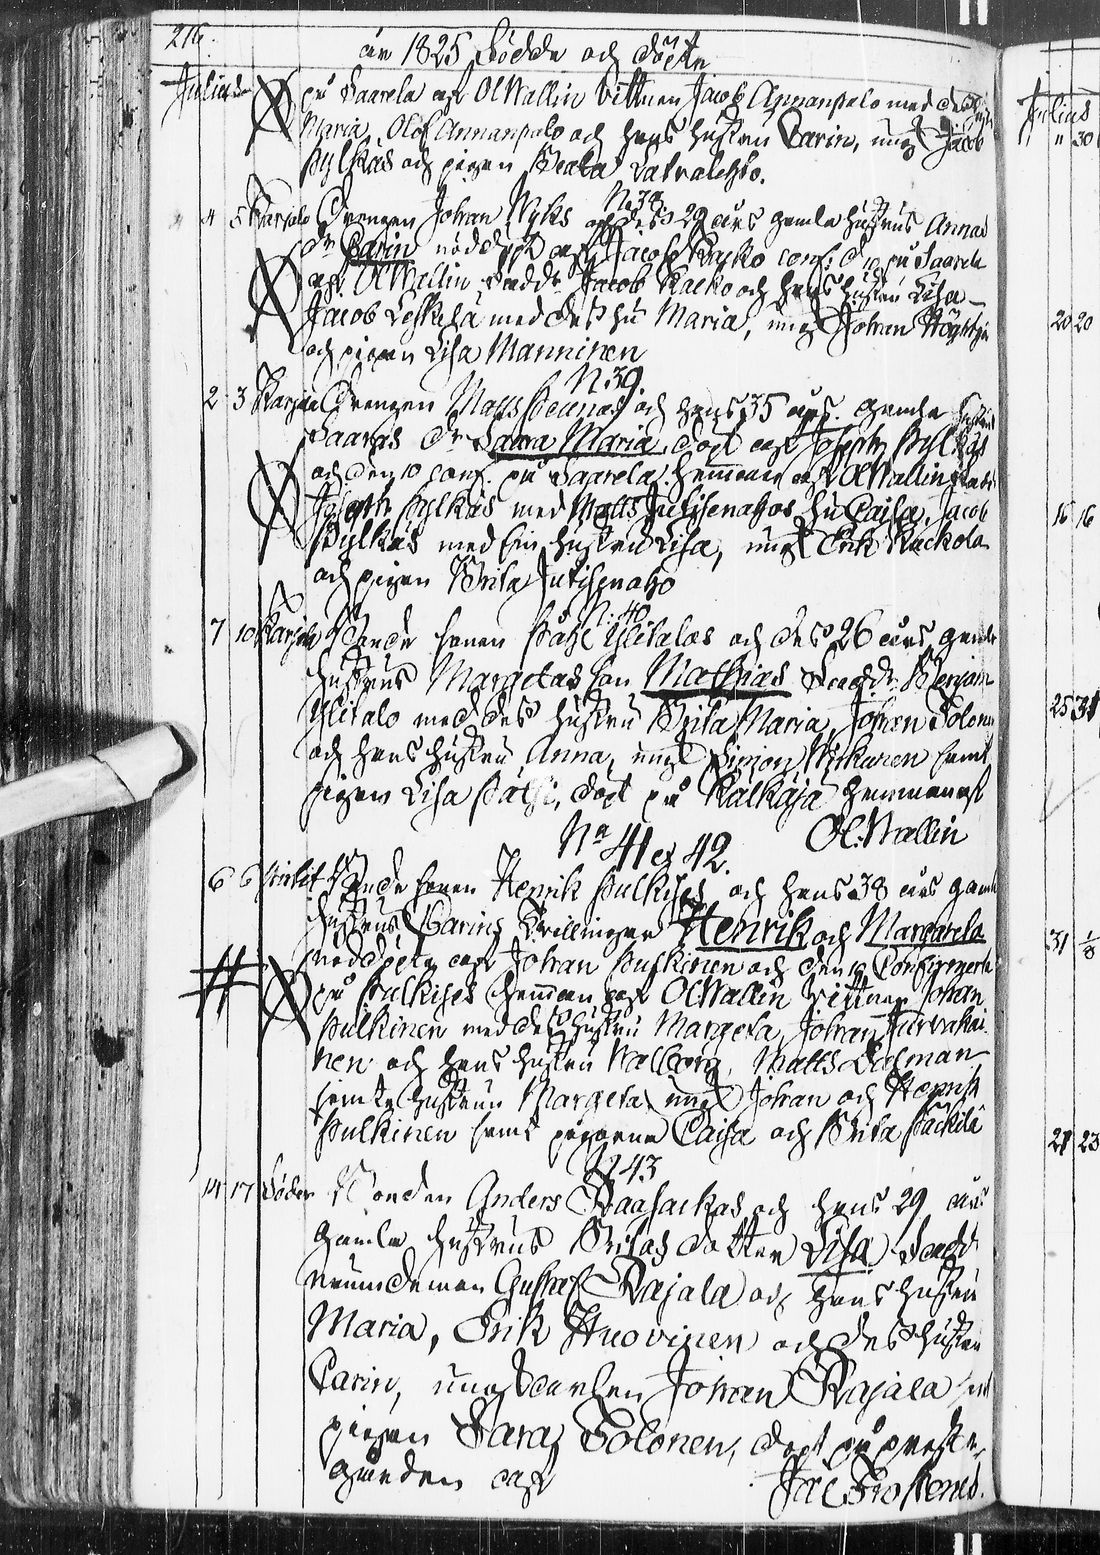 216.
år 1825 Födde och döpte
Julius
på Saarela af Ol Wallin Vittnen Jacob Annanpalo med dess hustru
Maria, Olof Annanpalo och hans hustru Carin, ungk Jacob
Pylkäs och pigan Beata Latvalehto.
N:38
4 5 Karjala Drengen Johan Nyks och des 29 års gamla hustrus Annas
dr Carin nöddöpt af Jacob conf: d 10 på Saarela
af Ol Wallin. Fadd: Jacob och hans hustru Lisa
Jacob Leskelä med des hu Maria, ungk Johan
och pigan Lisa Manninen
N:39.
2 3 Karjala Drengen Matts och hans 35 års gamla hustrus
Saaras dr Saara Maria, döpt af Joseph Pylkäs
och den 10 conf. på Saarela hemman af Ol Wallin Fadd:
Joseph Pylkäs med Matts Jutisenahos hu Caisa, Jacob
Pylkäs med sin hustru Lisa, ungk Erik Räckola
och pigan Brita Jutisenaho
N:40
7 10 Karjala Bonde sonen Påhl Ylitalos och des 26 års gamla
hustrus Margetas son Mathias Fadd: Benjam
Ylitalo med des hustru Brita Maria, Johan Tolonen
och hans hustru Anna, ungk Simon samt
pigan Lisa döpt på Kalkaja hemman af
Ol: Wallin
No 41 & 42.
6 6 Bonde sonen Henrik Pulkises och hans 38 års gamla
hustrus Carins Tvillingar Henrik och Margareta
nöddöpte af Johan Pulkinen och den 10 Confirmerte
på Pulkises hemman af Ol Wallin Vittnen Johan
Pulkinen med des hustru Margeta, Johan Jurvakai
nen och hans hustru Walborg, Matts
jemte hustrun Margeta, ungk Johan och Henrik
Pulkinen samt pigorna Caisa och Brita Päckilä
N 43
14 17 Bonden Anders och hans 29 års
gamla hustrus Britas dotter Lisa Fadd:
nemndeman Gustaf Rajala och hans hustru
Maria, Erik Huovinen och des hustru
Carin, ungkarlen Johan Rajala samt
pigan Sara Tolonen, döpt på preste-
gården af
Jac
Julius
" 30
20 20
16 16
25 31
31 1/8
21 23